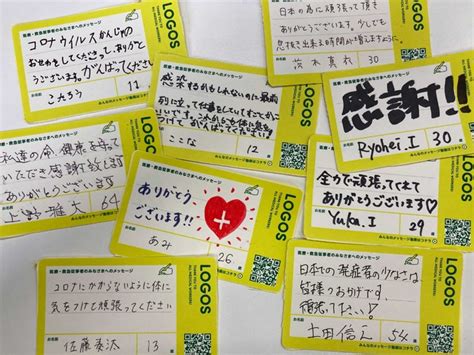 コロナウイルスかんじゃの
おせわをしてくださって、ありがとう
ございます。がんばってください。
こたろう 11
LOGOS
医療・救急従事者のみなさまへのメッセージ
ここな 12
LOGOS
日本の為に頑張って頂き
ありがとうございます。少しでも
息抜き出来る時間が増えますように。
茨木真衣 30
LOGOS
感謝!!
Ryohei.I 30
私達の命、健康を守って
いただき感謝致します
ありがとうございます!
上野雅大 64
LOGOS
医療・救急従事者のみなさまへのメッセージ
ありがとう
ございます!!
あみ 26
みんなのメッセージ動画はコチラ
LOGOS
全力で頑張ってくれて
ありがとうございます♡
Yuka.I 29
LOGOS
医療・救急従事者のみなさまへのメッセージ
コロナにかからないように体に
気をつけて頑張ってください
佐藤奏汰 13
LOGOS
日本での発症者の少なさは、
皆様のおかげです。
頑張って下さい!
土田信 54
LOGOS